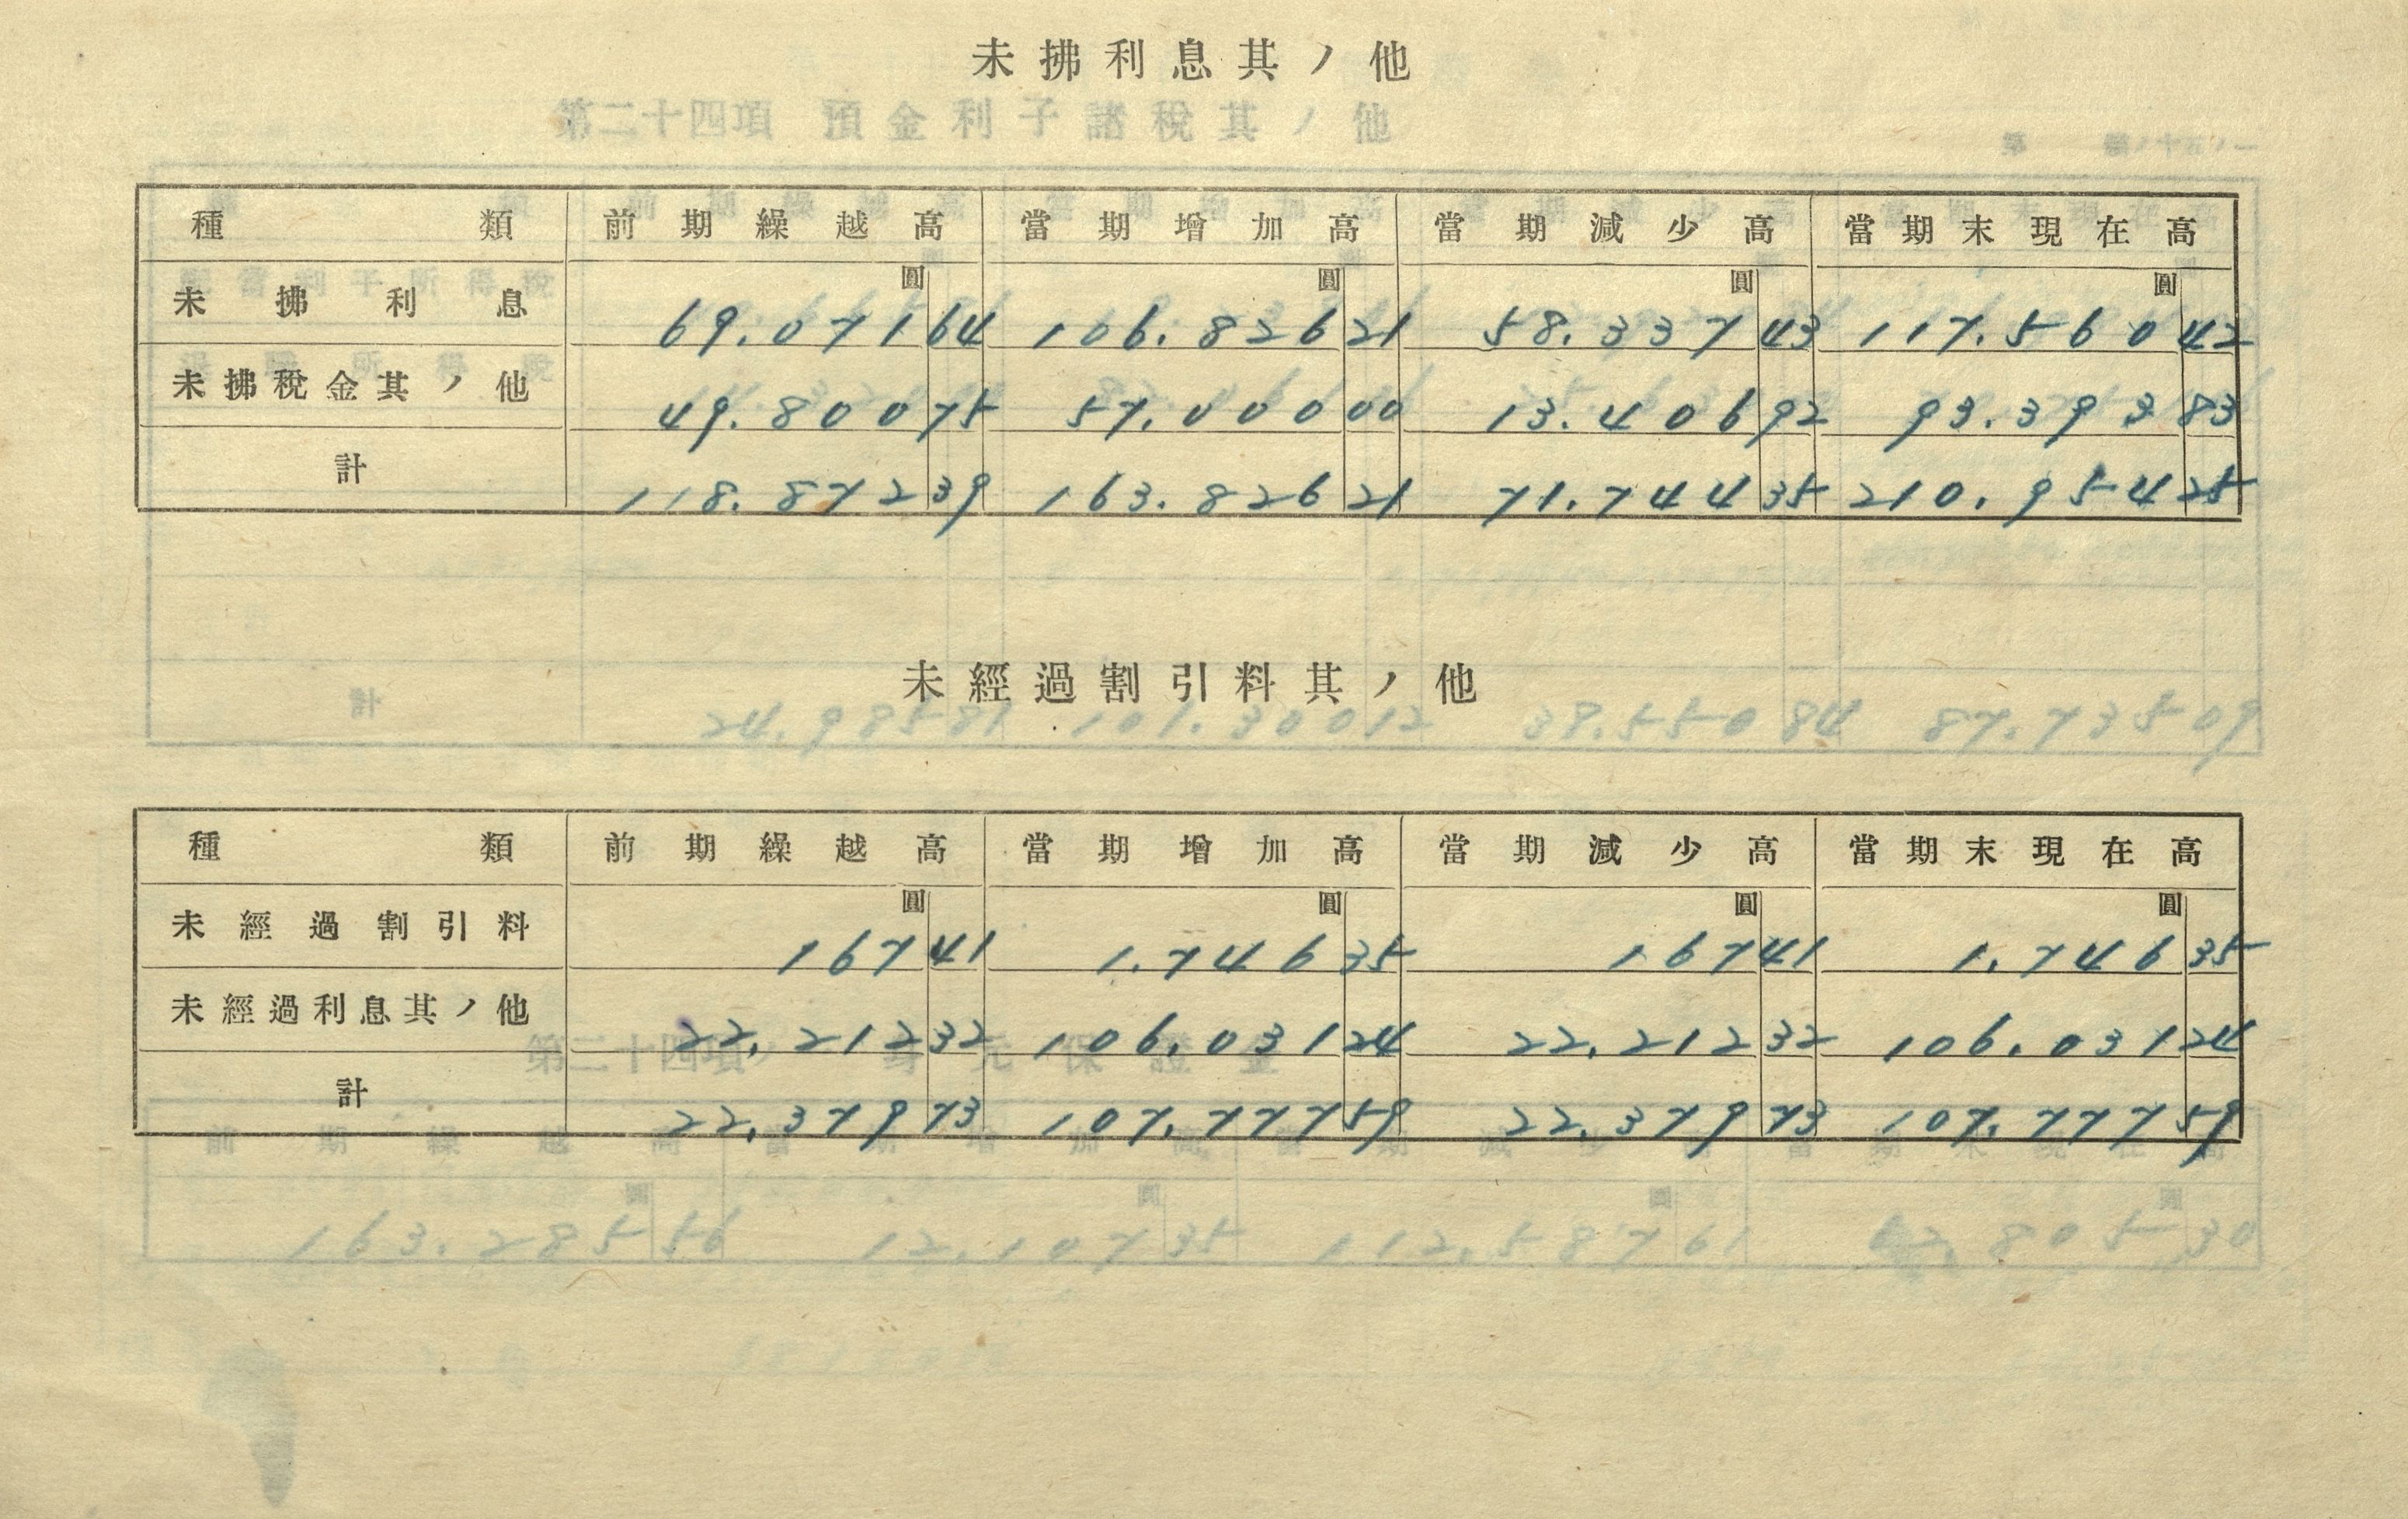 未拂利息其ノ他
種類 前期繰越高 當期增加高 當期減少高 當期末現在高
圓 圓 圓 圓
未拂利息 69.071 64 106.826 21 58.337 43 117.560 42
未拂稅金其ノ他 49.800 75 57.000 00 13.406 92 93.393 83
計 118.872 39 163.826 21 71.744 35 210.954 25
未經過割引料其ノ他
種類 前期繰越高 當期增加高 當期減少高 當期末現在高
圓 圓 圓 圓
未經過割引料 167 41 1.746 35 167 41 1.746 35
未經過利息其ノ他 22.212 32 106.031 24 22.212 32 106.031 24
計 22.379 73 107.777 59 22.379 73 107.777 59